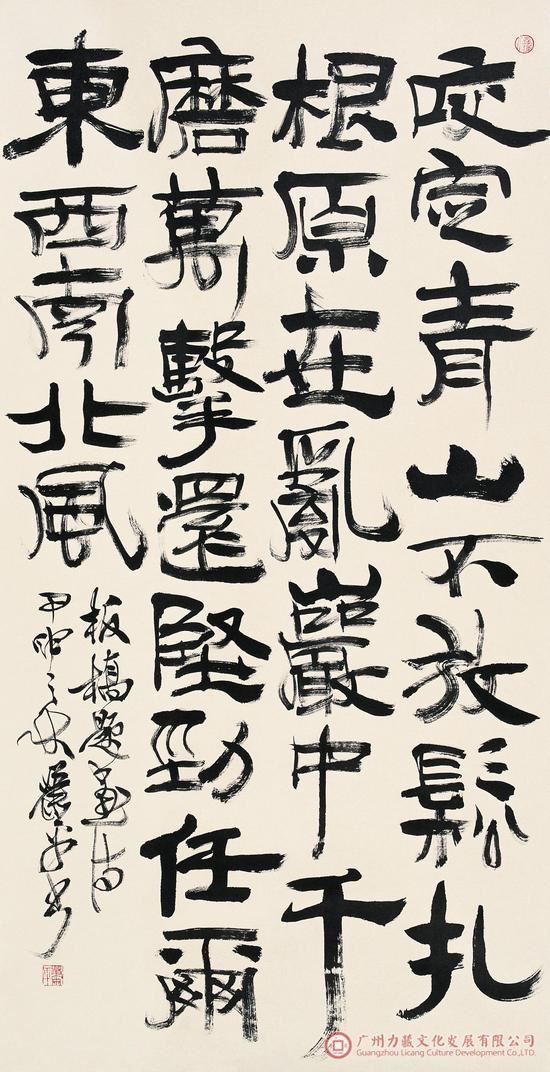 咬定青山不放鬆扎
根原在亂巖中千
磨萬擊還堅勁任爾
東西南北風
板橋題畫詩
甲申之秋書
广州力藏文化发展有限公司
Guangzhou Licang Culture Development Co.,Ltd.